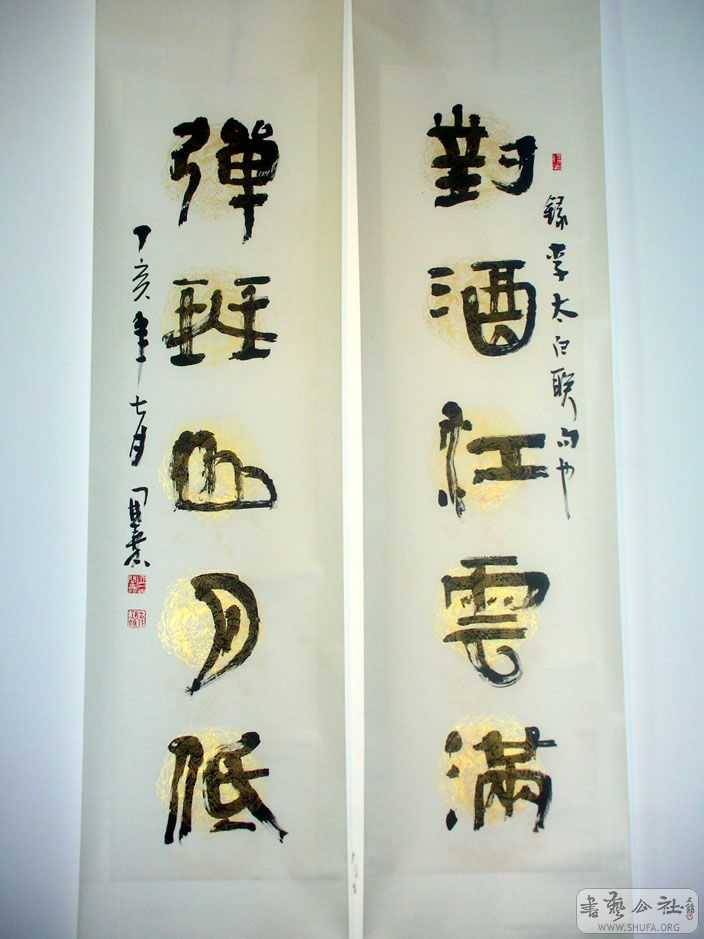 對酒江雲滿
錄李太白聯句也
弹琴山月低
丁亥年七月
書藝公社
WWW.SHUFA.ORG